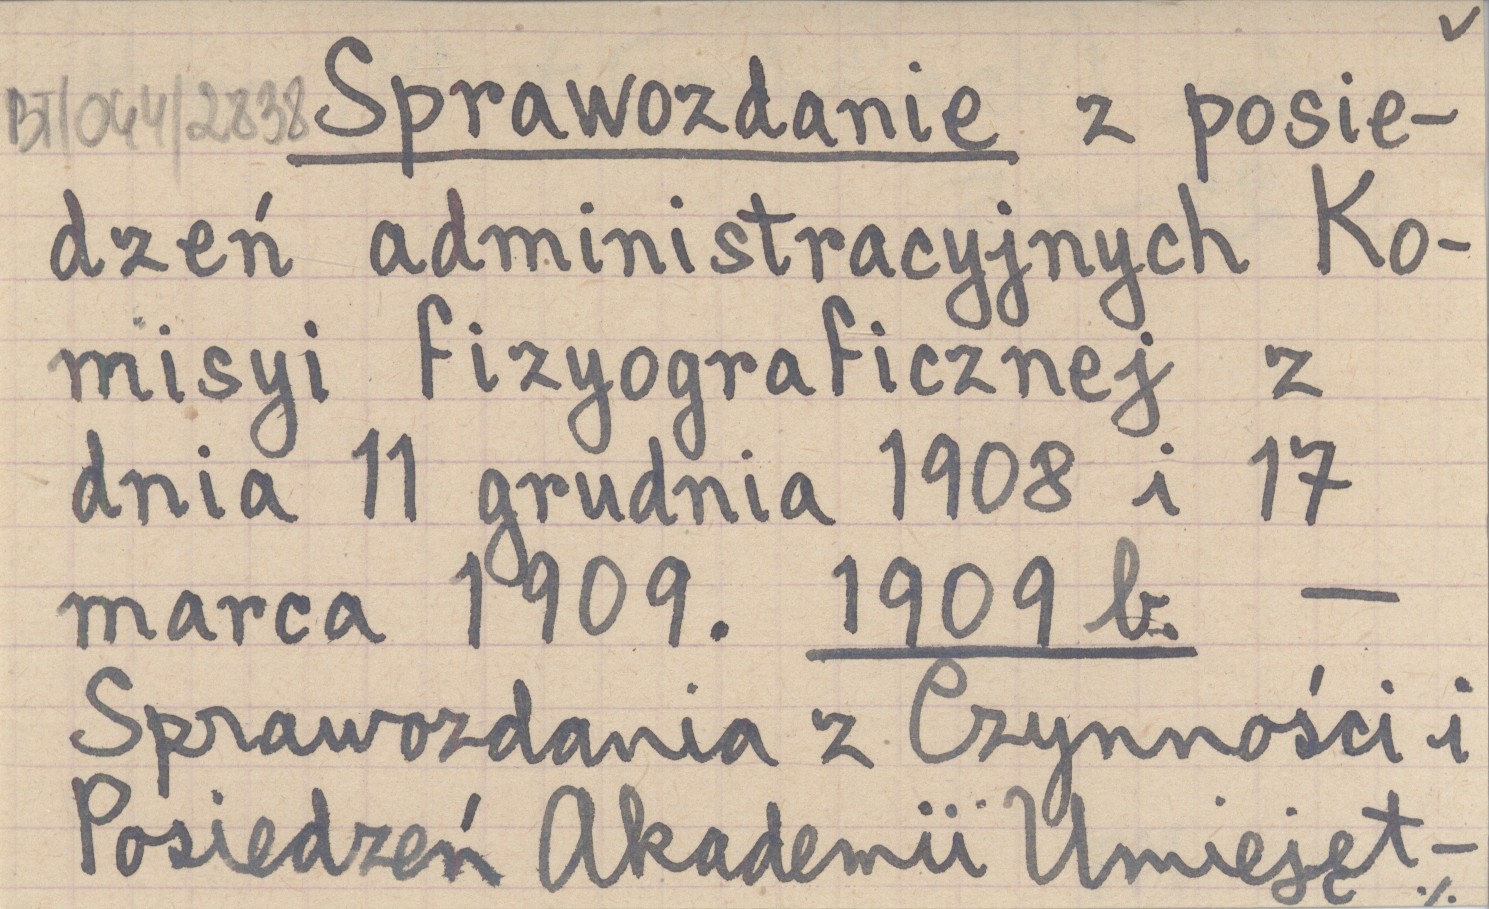 ✓
BI/044/2838 Sprawozdanie z posie-
dzeń administracyjnych Ko-
misyi fizyograficznej z
dnia 11 grudnia 1908 i 17
marca 1909. 1909 b. —
Sprawozdania z Czynności i
Posiedzeń Akademii Umiejęt-
./.